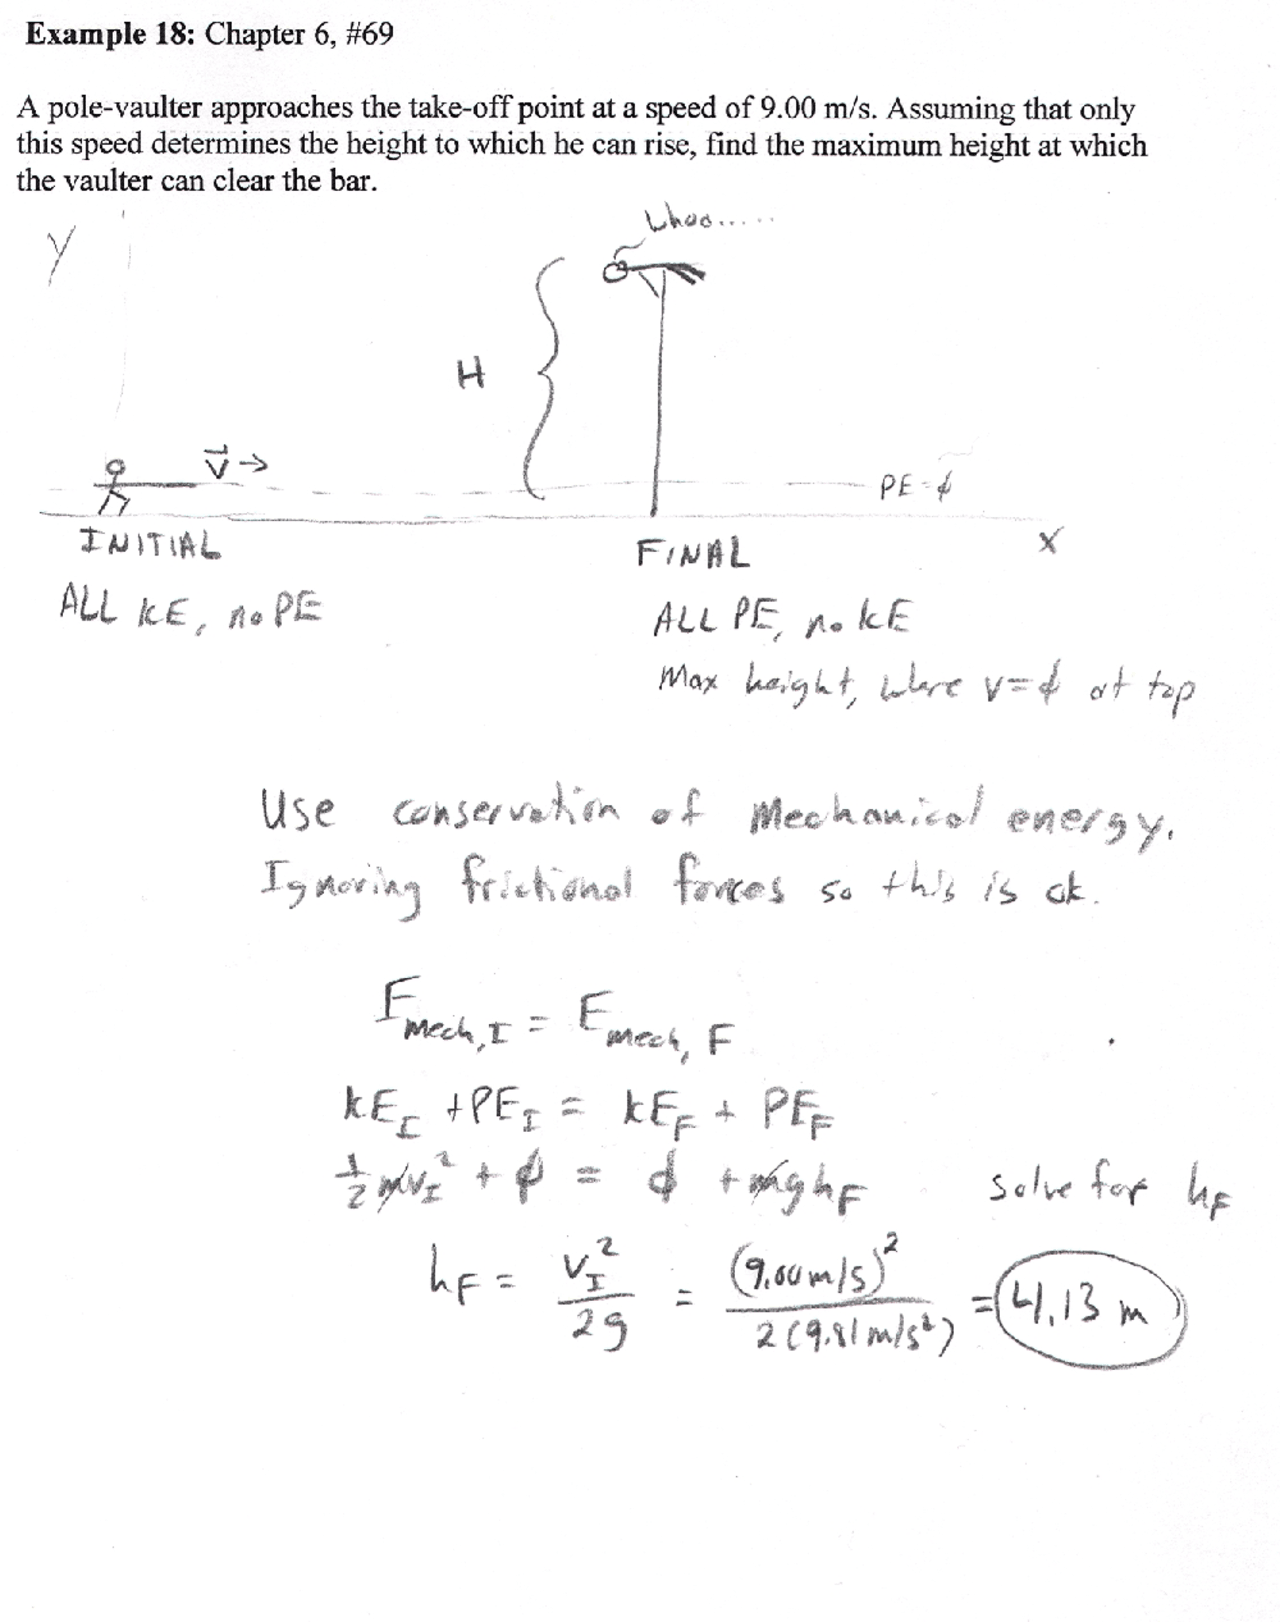 Example 18: Chapter 6, #69
A pole-vaulter approaches the take-off point at a speed of 9.00 m/s. Assuming that only
this speed determines the height to which he can rise, find the maximum height at which
the vaulter can clear the bar.
Whoo......
y
H
v→
PE=ϕ
x
INITIAL
FINAL
ALL KE, no PE
ALL PE, no KE
Max height, where v=ϕ at top
Use conservation of Mechanical energy.
Ignoring frictional forces so this is ok.
E_mech,I = E_mech,F
KE_I + PE_I = KE_F + PE_F
1/2 mv_I² + ϕ = ϕ + mgh_F solve for h_F
h_F = v_I²/2g = (9.00 m/s)²/2(9.81 m/s²) = 4.13 m